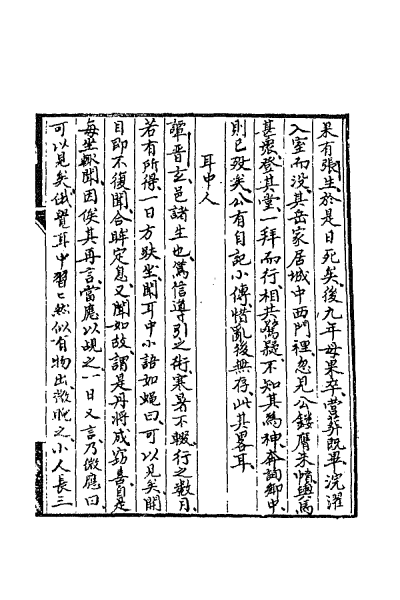 果有張生於是日死矣後九年母果卒營葬既畢浣濯
入室而没其岳家居城中西門裡忽見公鏤膺朱幩輿馬
甚衆登其堂一拜而行相共驚疑不知其為神奔詢鄉中
則已殁矣公有自記小傳惜亂後無存此其畧耳
耳中人
譚晋玄邑諸生也篤信導引之術寒暑不輟行之數月
若有所得一日方趺坐聞耳中小語如蠅曰可以見矣開
目即不復聞合眸定息又聞如故謂是丹將成竊喜自是
每坐輒聞因俟其再言當應以覘之一日又言乃微應曰
可以見矣俄覺耳中習〻然似有物出微睨之小人長三